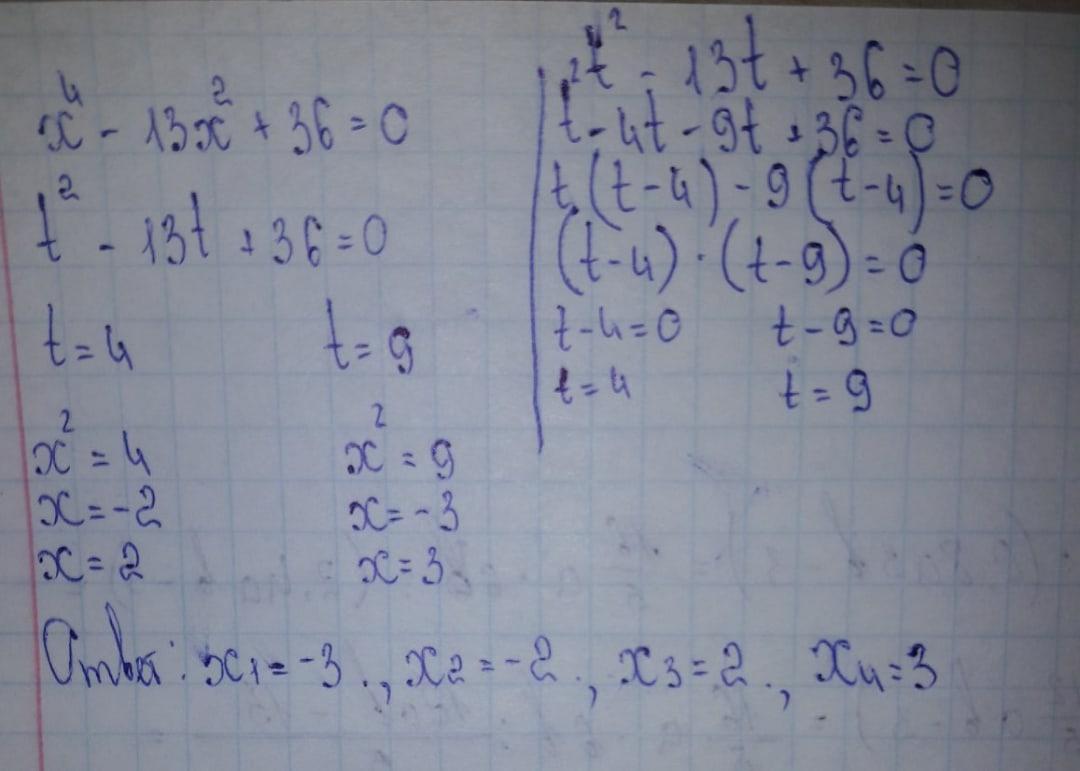 x⁴ - 13x² + 36 = 0
t² - 13t + 36 = 0
t = 4 t = 9
x² = 4 x² = 9
x = -2 x = -3
x = 2 x = 3
t² - 13t + 36 = 0
t² - 4t - 9t + 36 = 0
t(t - 4) - 9(t - 4) = 0
(t - 4) · (t - 9) = 0
t - 4 = 0 t - 9 = 0
t = 4 t = 9
Ответ: x₁ = -3., x₂ = -2., x₃ = 2., x₄ = 3